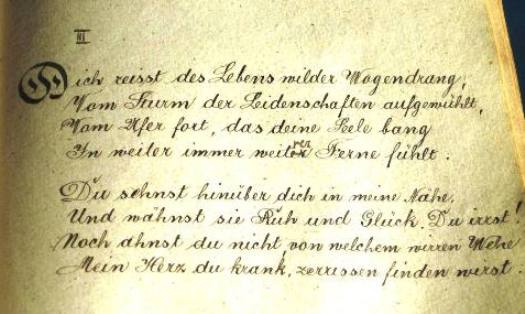 III
Dich reisst des Lebens wilder Wogendrang,
Vom Sturm der Leidenschaften aufgewühlt,
Vom Ufer fort, das deine Seele bang
In weiter immer weitrer Ferne fühlt.
Du sehnst hinüber dich in meine Nähe,
Und wähnst sie Ruh und Glück. Du irrst!
Noch ahnst du nicht, von welchem wirren Wehe
Mein Herz du krank, zerrissen finden wirst.